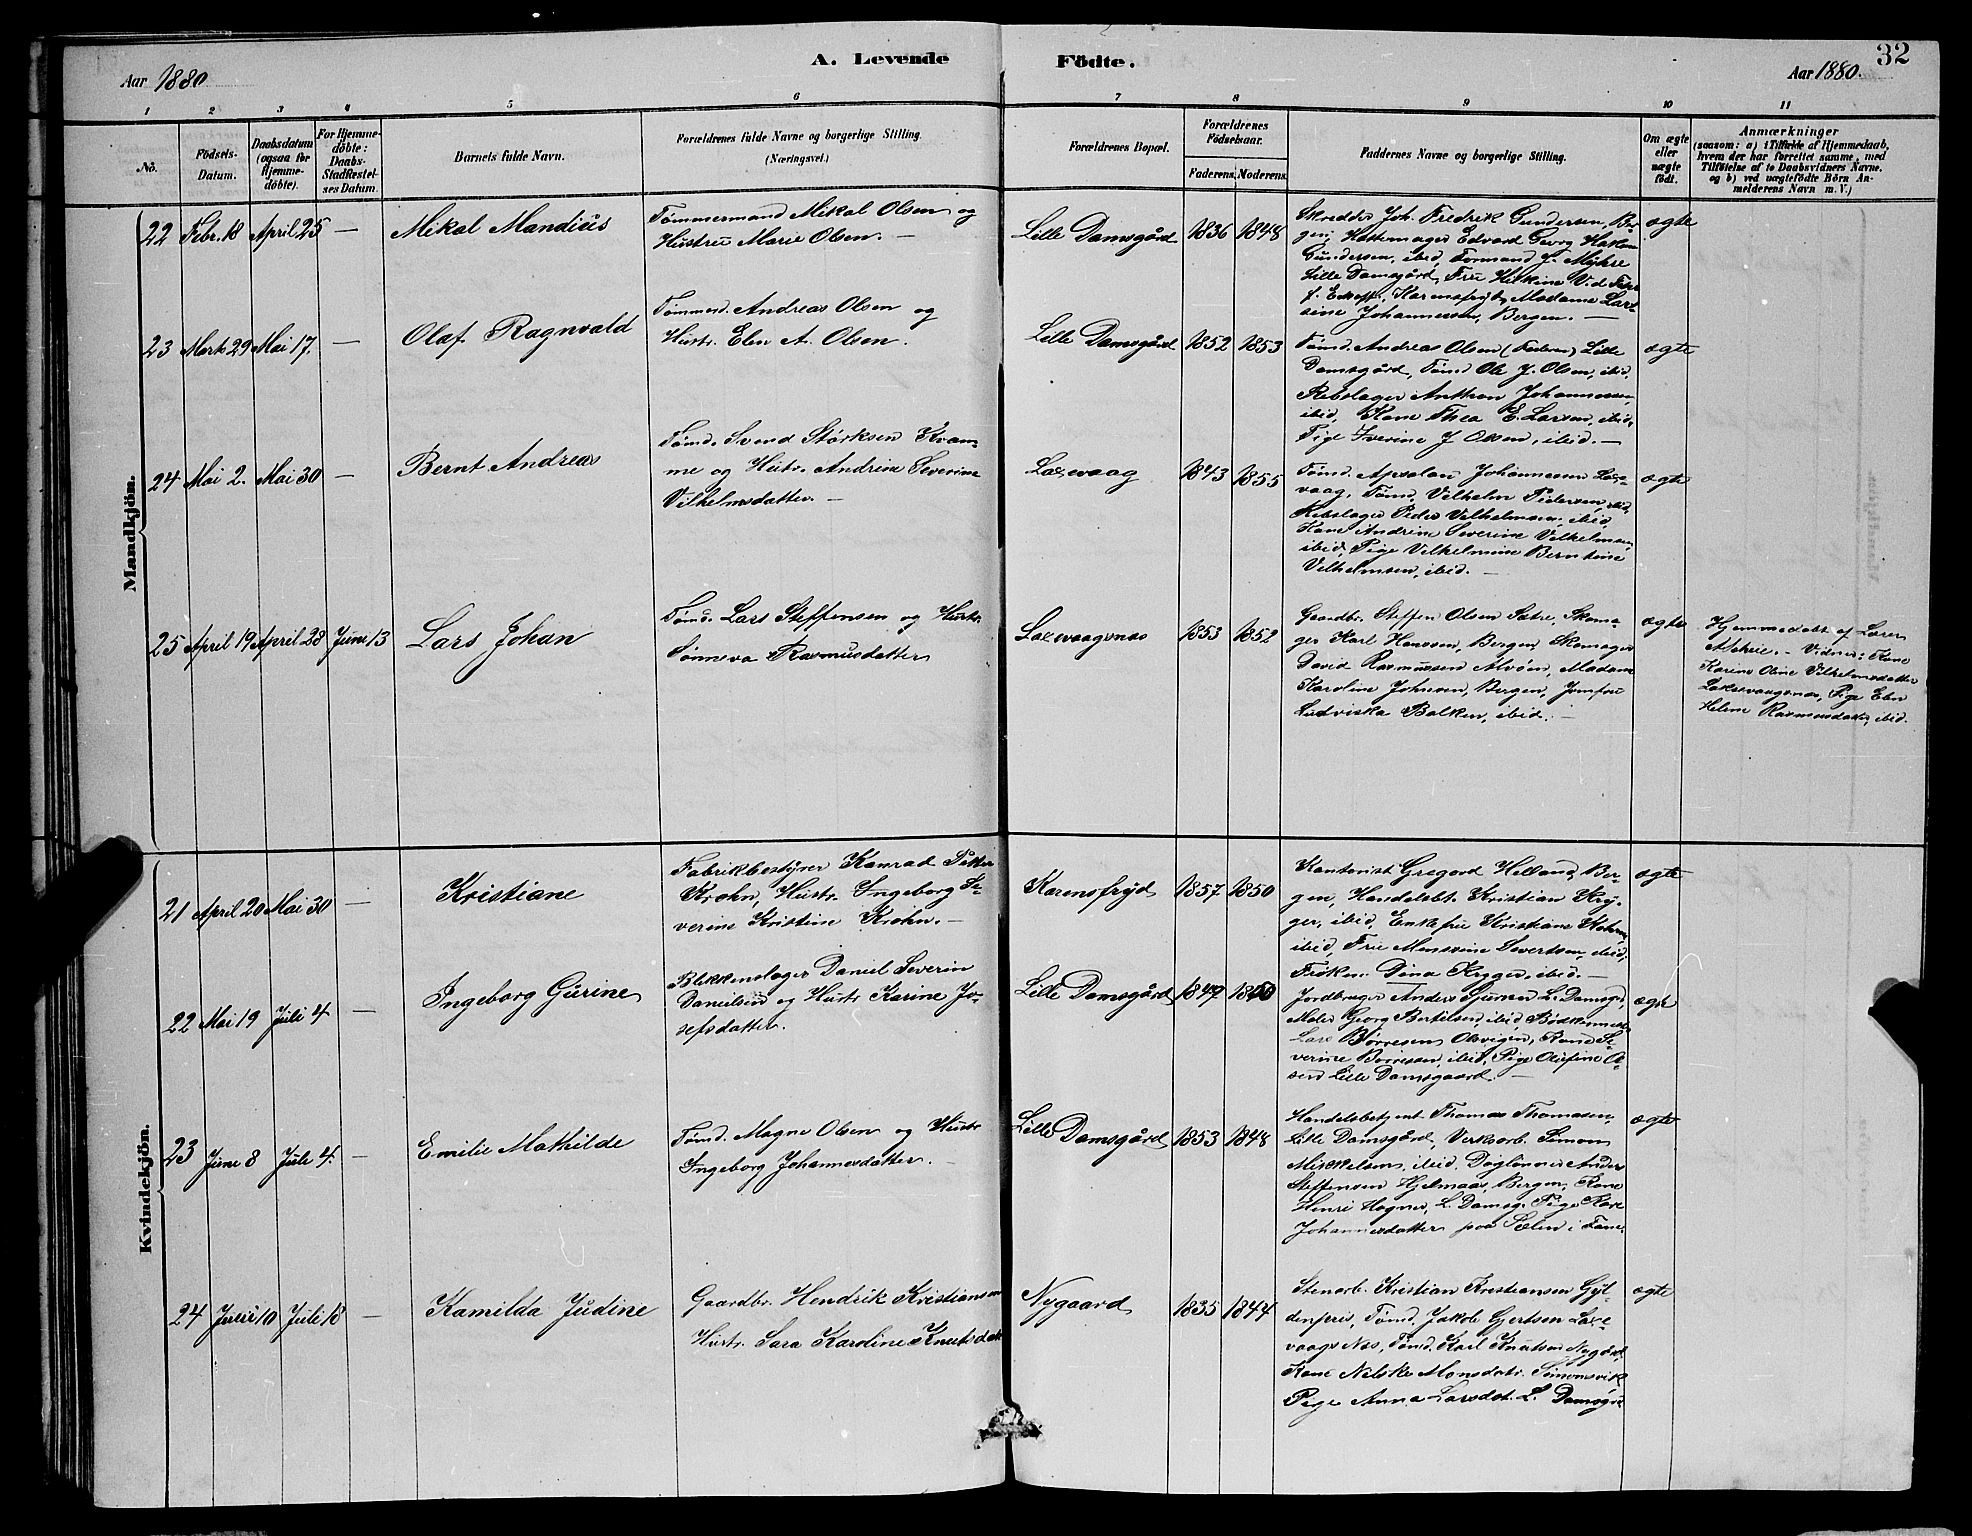 32
A. Levende Födte.
Aar 1880.
Aar 1880.
1 2 3 4 5 6 7 8 9 10 11
No.
Födsels-
Datum.
Daabsdatum
(ogsaa for
Hjemme-
döbte).
For Hjemme-
döbte:
Daabs-
Stadfæstel-
ses Datum.
Barnets fulde Navn.
Forældrenes fulde Navne og borgerlige Stilling.
(Næringsvei.)
Forældrenes Bopæl.
Forældrenes
Födselsaar.
Faderens. Moderens.
Faddernes Navne og borgerlige Stilling.
Om ægte
eller
uægte
födt.
Anmærkninger
(saasom: a) i Tilfælde af Hjemmedaab,
hvem der har forrettet samme, med
Tilföielse af to Daabsvidners Navne.
og b) ved uægtefödte Börn An-
melderens Navn m. V.)
Mandkjön.
22 Febr. 18 April 25 —
Mikal Mandius
Tømmermand Mikal Olsen og
Hustru Marie Olsen. —
Lille Damsgård 1836 1848
Skredder Joh. Fredrik Gundersen, Ber-
gen; Hattemager Edvard Georg Hakon
Gundersen, ibid, Formand J. Myhre
Lille Damsgård, Fru
Karensfryd, Madame Lar-
sine Johannessen, Bergen. —
ægte
23 Marts 29 Mai 17. —
Olaf Ragnvald
Tømmerm. Andreas Olsen og
Hustr. Elen A. Olsen.
Lille Damsgård 1852 1853
Tømd. Andreas Olsen (Faderen) Lille
Damsgård, Tømd Ole J. Olsen, ibid,
Rebslager Anthon Johannessen,
ibid, Kone Thea E. Larsen, ibid,
Pige Iverine J Olsen, ibid. —
ægte
24 Mai 2. Mai 30 —
Bernt Andreas
Tømd. Svend Størksen Kvam-
me og Hustr. Andrine Severine
Vilhelmsdatter. —
Laxevaag 1843 1855
Tømd. Apsalon Johannessen Laxe-
vaag, Tømd. Vilhelm Pedersen, ibid,
Rebslager Peder Vilhelmsen, ibid,
Kone Andrine Severine Vilhelmsen,
ibid, Pige Vilhelmine Berntine
Vilhelmsen, ibid. —
ægte
25 April 19 April 28 Juni 13
Lars Johan
Tømd. Lars Steffensen og Hustr.
Sønneva Rasmusdatter
Laxevaagsnæs 1853 1852
Gaardbr. Steffen Olsen Sætre, Skoma-
ger Karl Hanssen, Bergen, Skomager
David Rasmussen Alvøen, Madam
Karoline Johnsen, Bergen, Jomfru
Ludviska Balken, ibid. —
ægte
Hjemmedøbt af Lærer
— Vidner: Kone
Karine Oline Vilhelmsdatter
Laksevaagsnæs, Pige Elen
Helene Rasmusdatter, ibid.
Kvindekjön.
21 April 20 Mai 30 —
Kristiane
Fabrikbestyrer Konrad Petter
Krohn, Hustr. Ingeborg Se-
verine Kristine Krohn. —
Karensfryd 1857 1850
Kontorist Gregord Helland, Ber-
gen, Handelsbt. Kristian Kry-
ger, ibid, Enkefru Kristiane
ibid, Fru Monsine Sivertsen, ibid,
Frøken Dina Kryger, ibid. —
ægte
22 Mai 19 Juli 4 —
Ingeborg Gurine
Blikkenslager Daniel Severin
Danielsen og Hustr Karine Jo-
sefsdatter.
Lille Damsgård 1847 1850
Jordbruger Anders L. Damsg.
Maler Georg Bertelsen, ibid, Bødkermester
Lars Børresen Olsvigen, Kone Se-
verine Børresen, ibid, Pige Olufine Ol-
sen Lille Damsgaard. —
ægte
23 Juni 8 Juli 4. —
Emilie Mathilde
Tømd. Magne Olsen og Hustr
Ingeborg Johannesdatter. —
Lille Damsgård 1853 1848
Handelsbetjent Thomas Thomasen,
Lille Damsgård, Verksarb. Simon
Mikkelsen, ibid, Dagløner Anders
Steffensen Hjelmaas, Bergen, Kone
Henri Hagner, L. Damsg. Pige Kari
Johannesdatter paa Sælen i Fane
ægte
24 Juni 10 Juli 18 —
Kamilda Judine
Gaardbr. Hendrik Kristiansen
Hustr. Sara Karoline Knutsdatt
Nygaard 1835 1844
Stenarb. Kristian Kristiansen Gyl-
denpris, Tømd. Jakob Gjertsen Laxe-
vaags Næs, Tømd. Karl Knutsen Nygård,
Kone Nilske Monsdatr. Simonsvik
Pige Anna Larsdat. L. Damsgrd
ægte